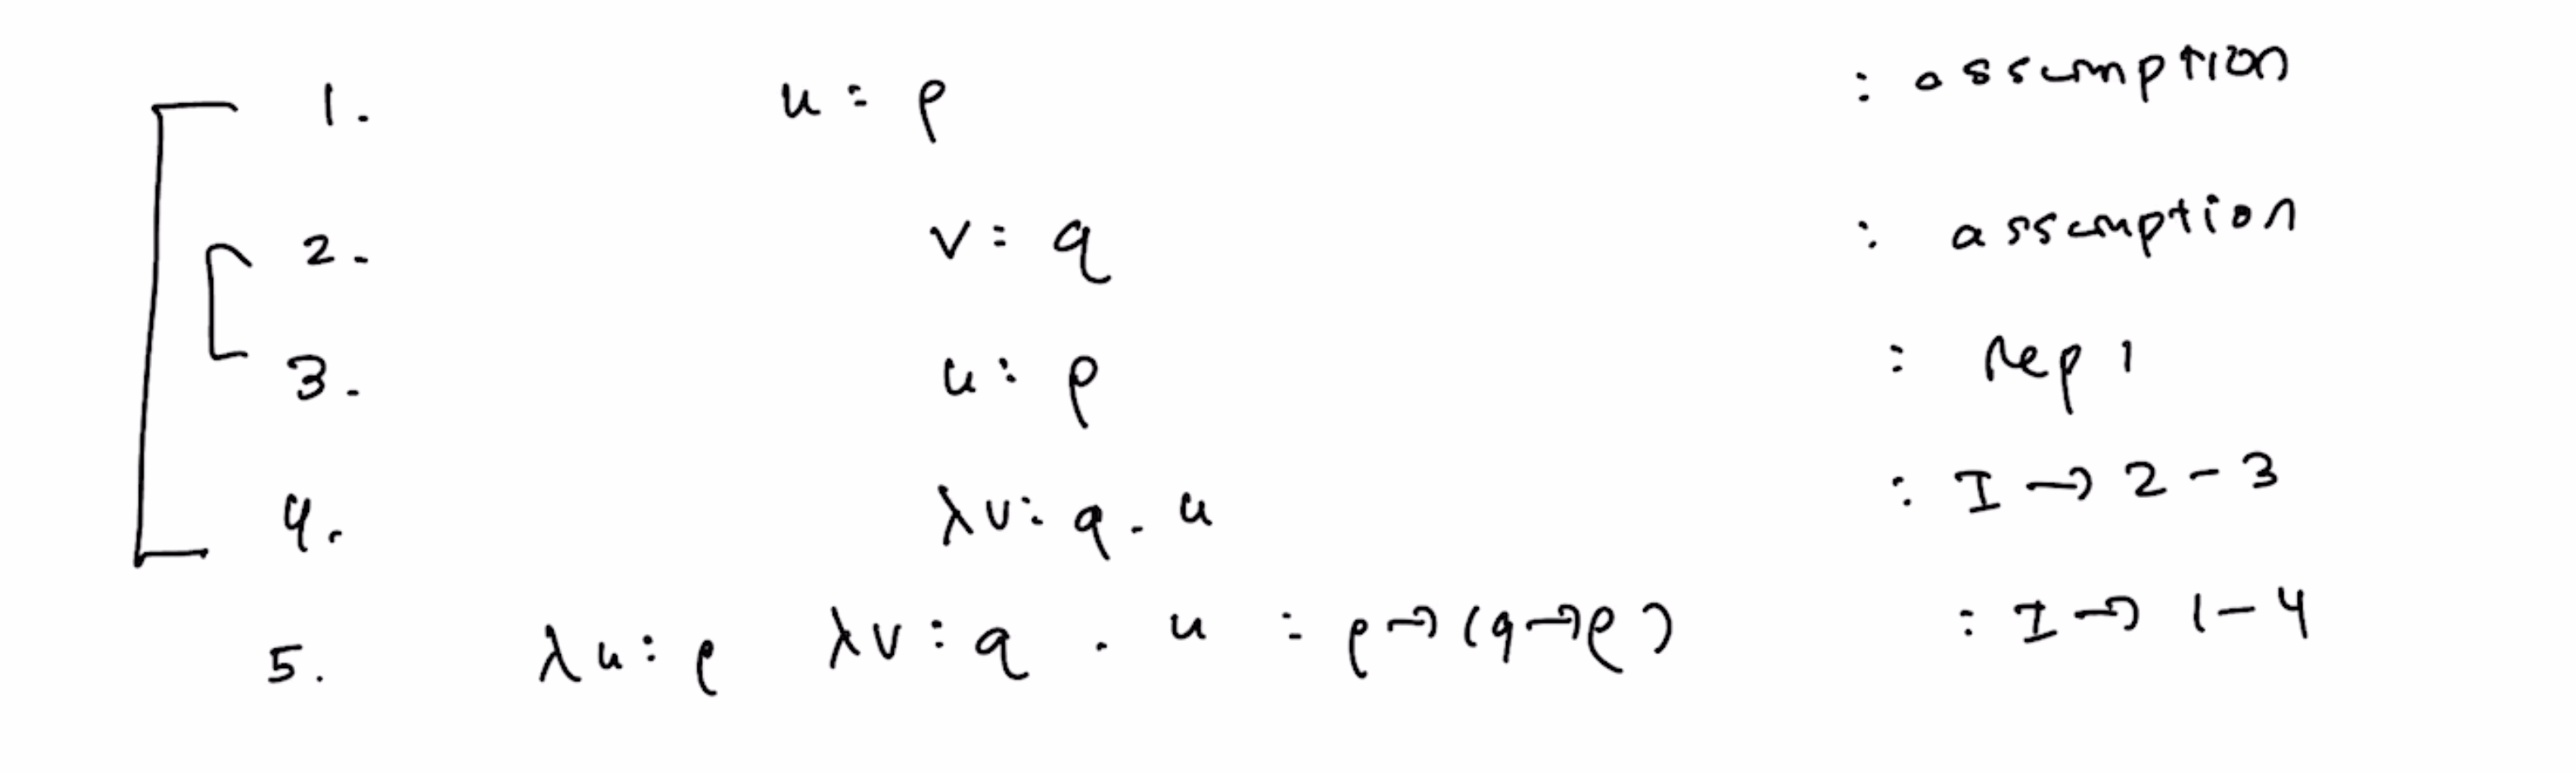 1. u : p : assumption
2. v : q : assumption
3. u : p : rep 1
4. λv : q . u : I → 2 - 3
5. λu : p λv : q . u : p → (q → p) : I → 1 - 4